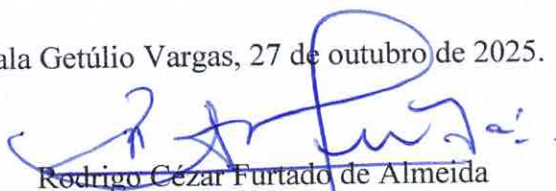 ala Getúlio Vargas, 27 de outubro de 2025.
Rodrigo Cézar Furtado de Almeida